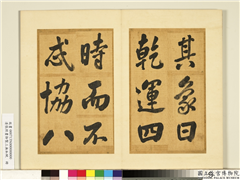 其象曰
乾運四
時而不
忒協八
國立故宮博物院